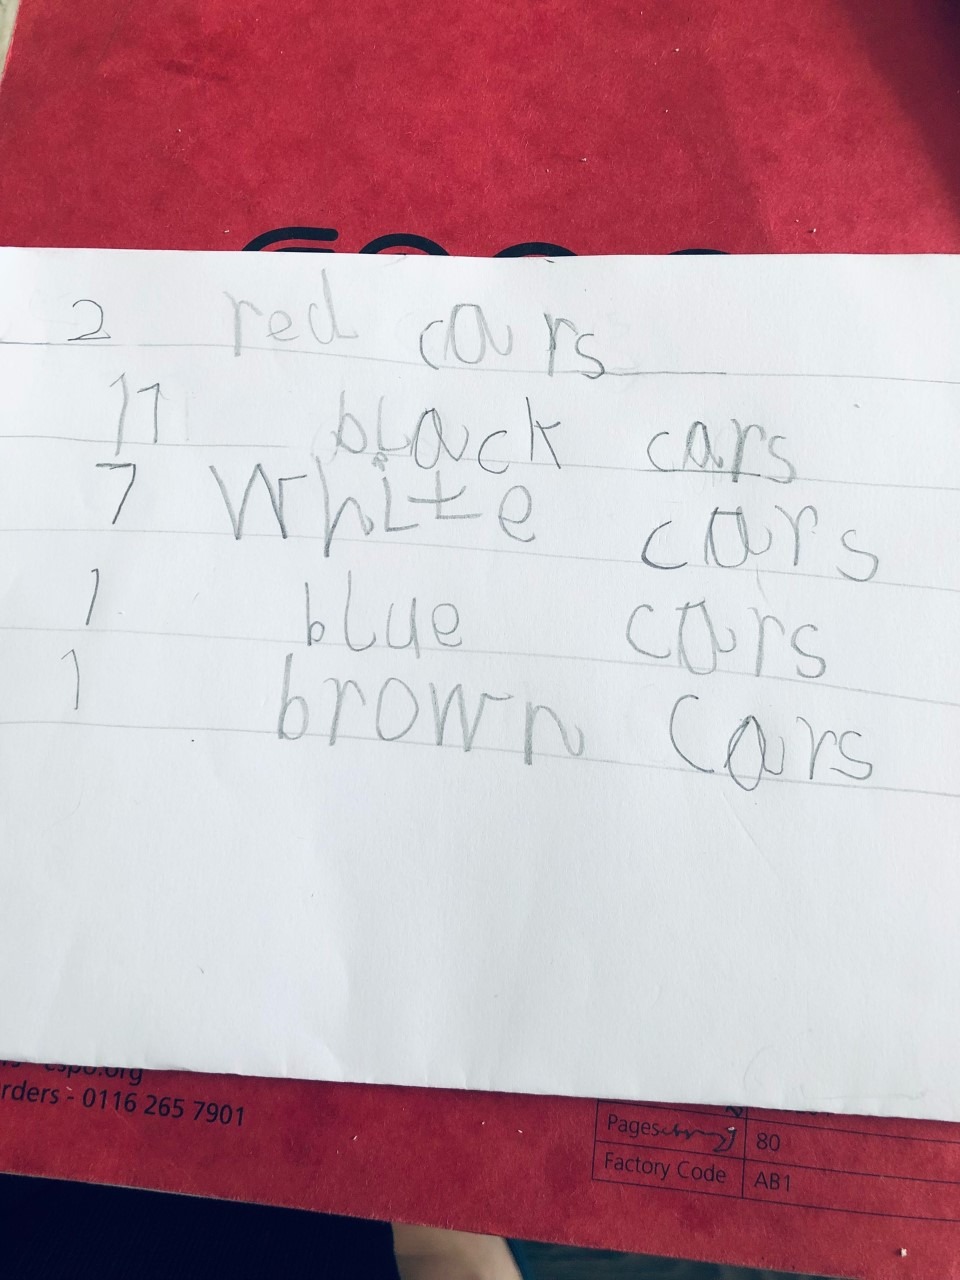 2 red cars
11 black cars
7 White cars
1 blue cars
1 brown cars
espo.org
rders - 0116 265 7901
Pages 80
Factory Code AB1